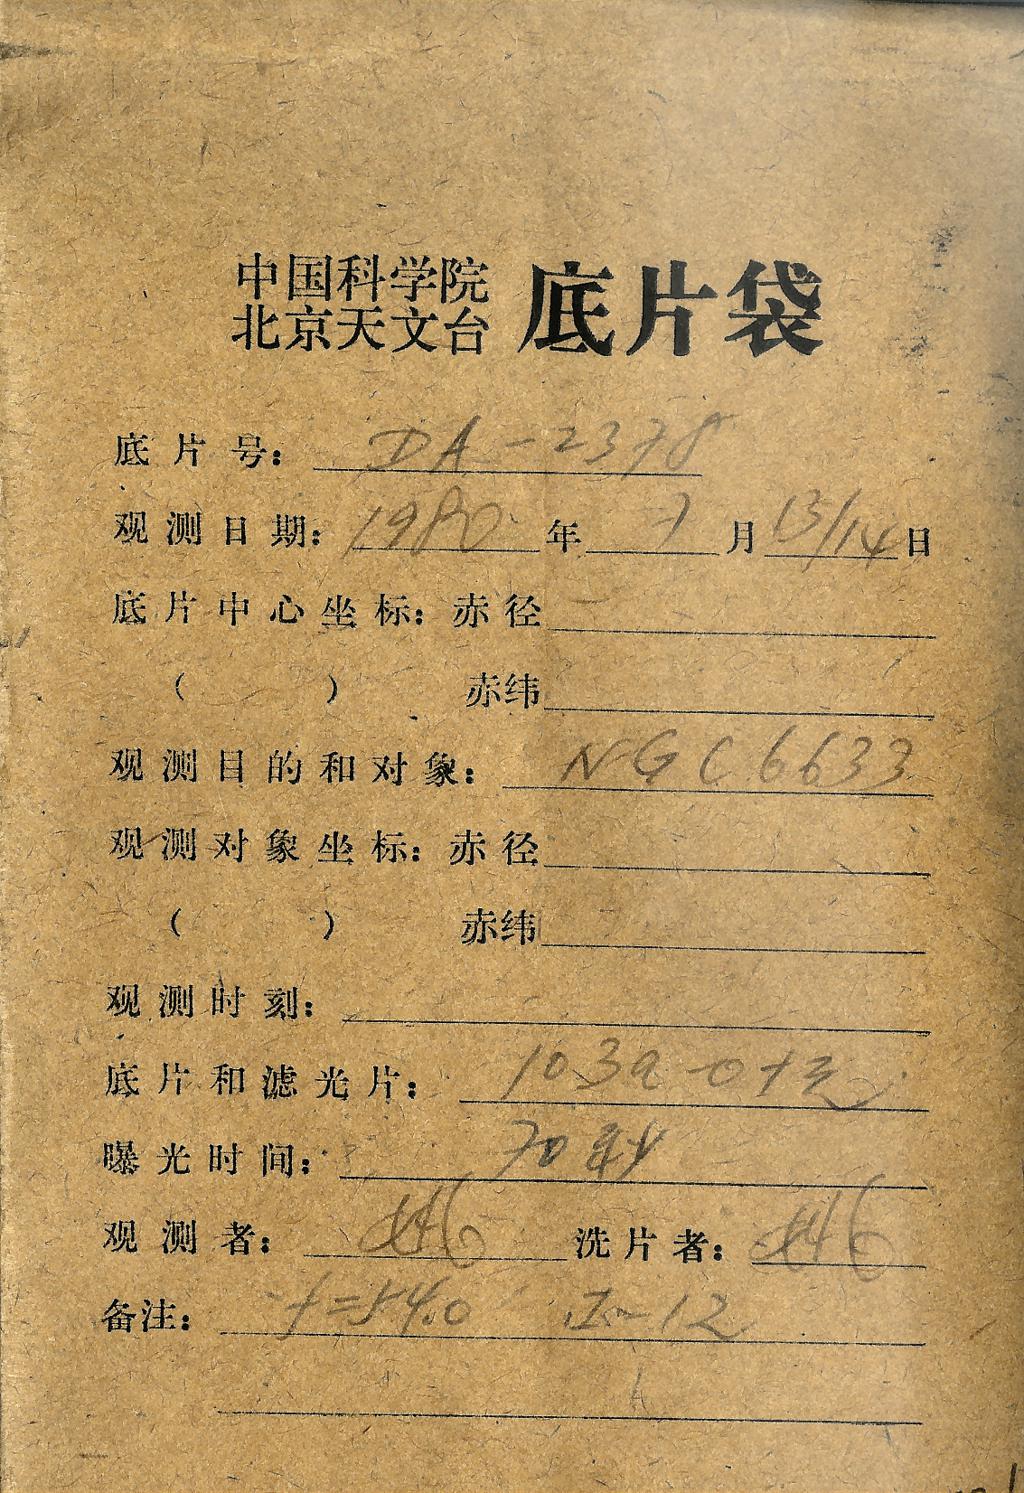 中国科学院
北京天文台 底片袋
底片号: DA-2378
观测日期: 1980 年 7 月 13/14 日
底片中心坐标: 赤径
( ) 赤纬
观测目的和对象: NGC6633
观测对象坐标: 赤径
( ) 赤纬
观测时刻:
底片和滤光片: 103a-O+
曝光时间: 70秒
观测者: 洗片者:
备注: f=54.0 I-12